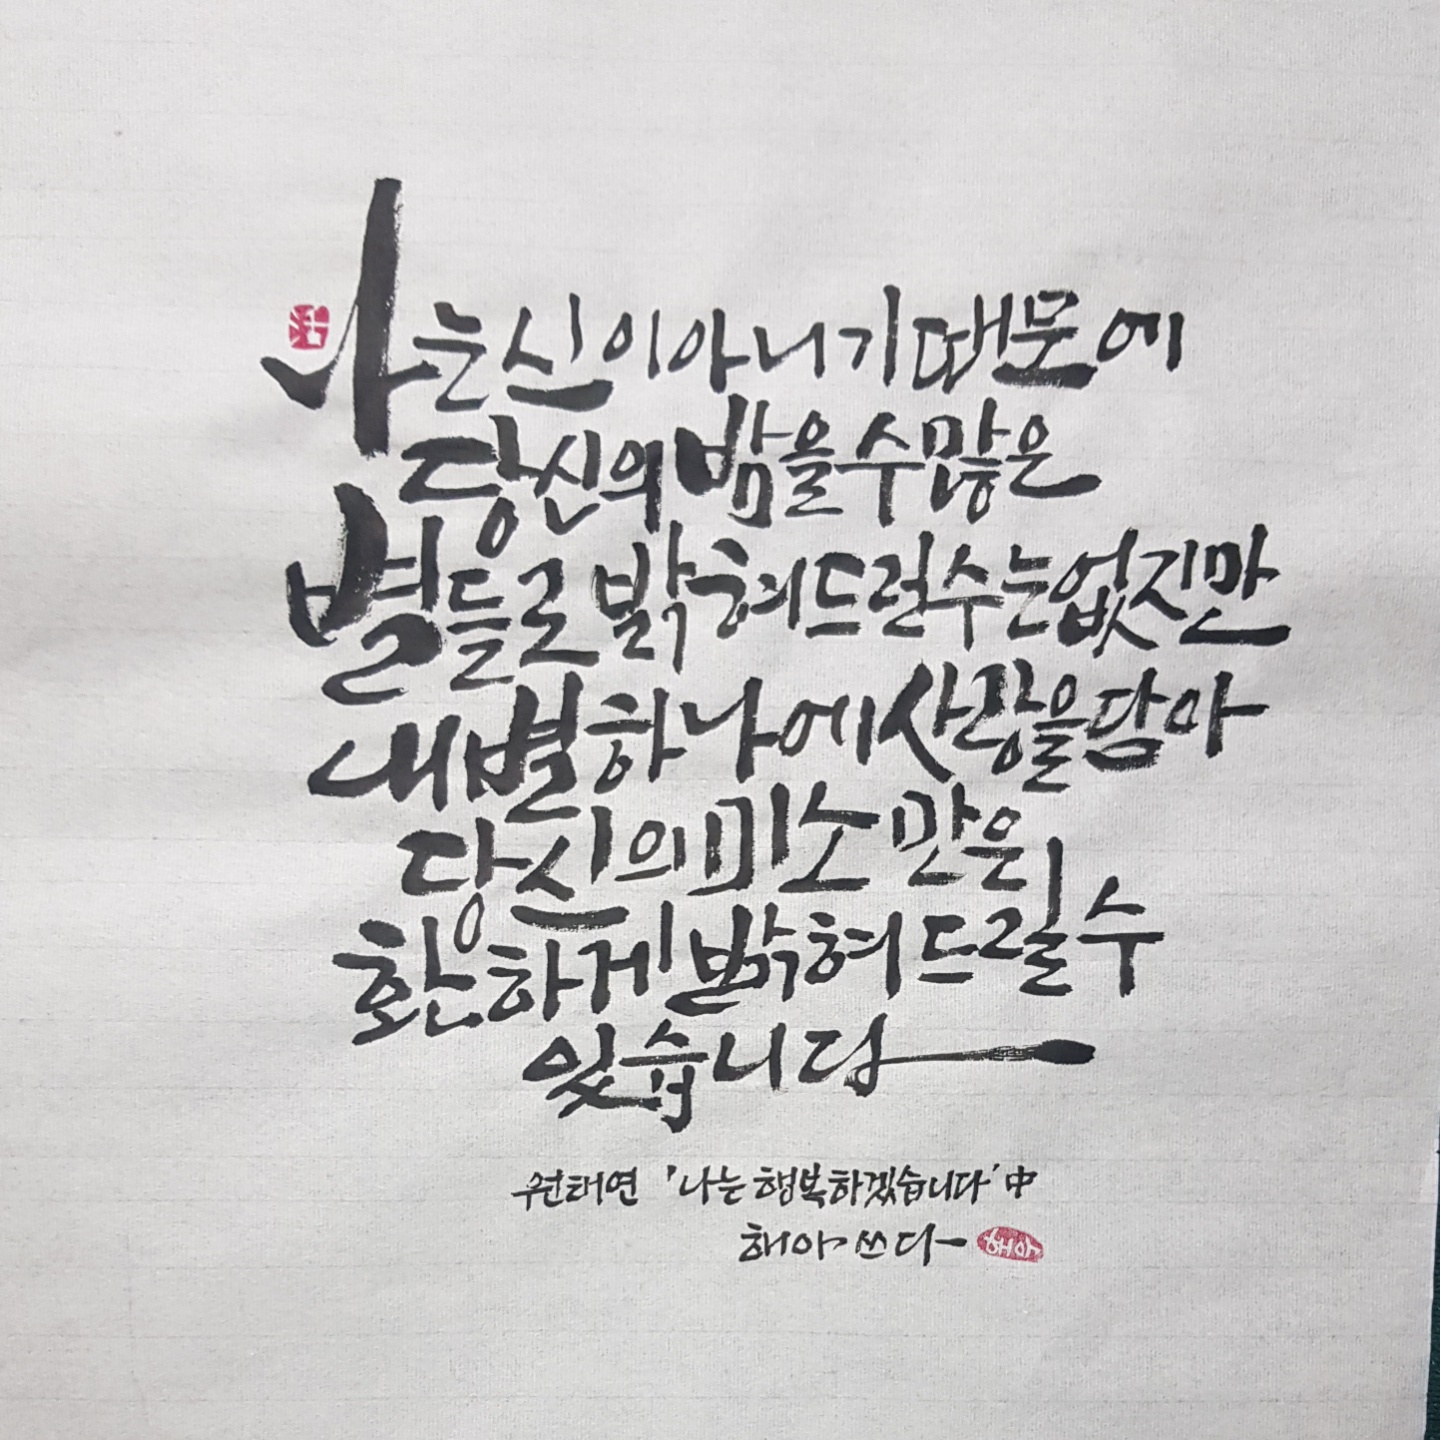 나는 신이 아니기 때문에
당신의 밤을 수많은
별들로 밝혀 드릴 수는 없지만
내 별 하나에 사랑을 담아
당신의 미소만은
환하게 밝혀 드릴 수
있습니다
원태연 '나는 행복하겠습니다' 中
해아 쓰다
해아